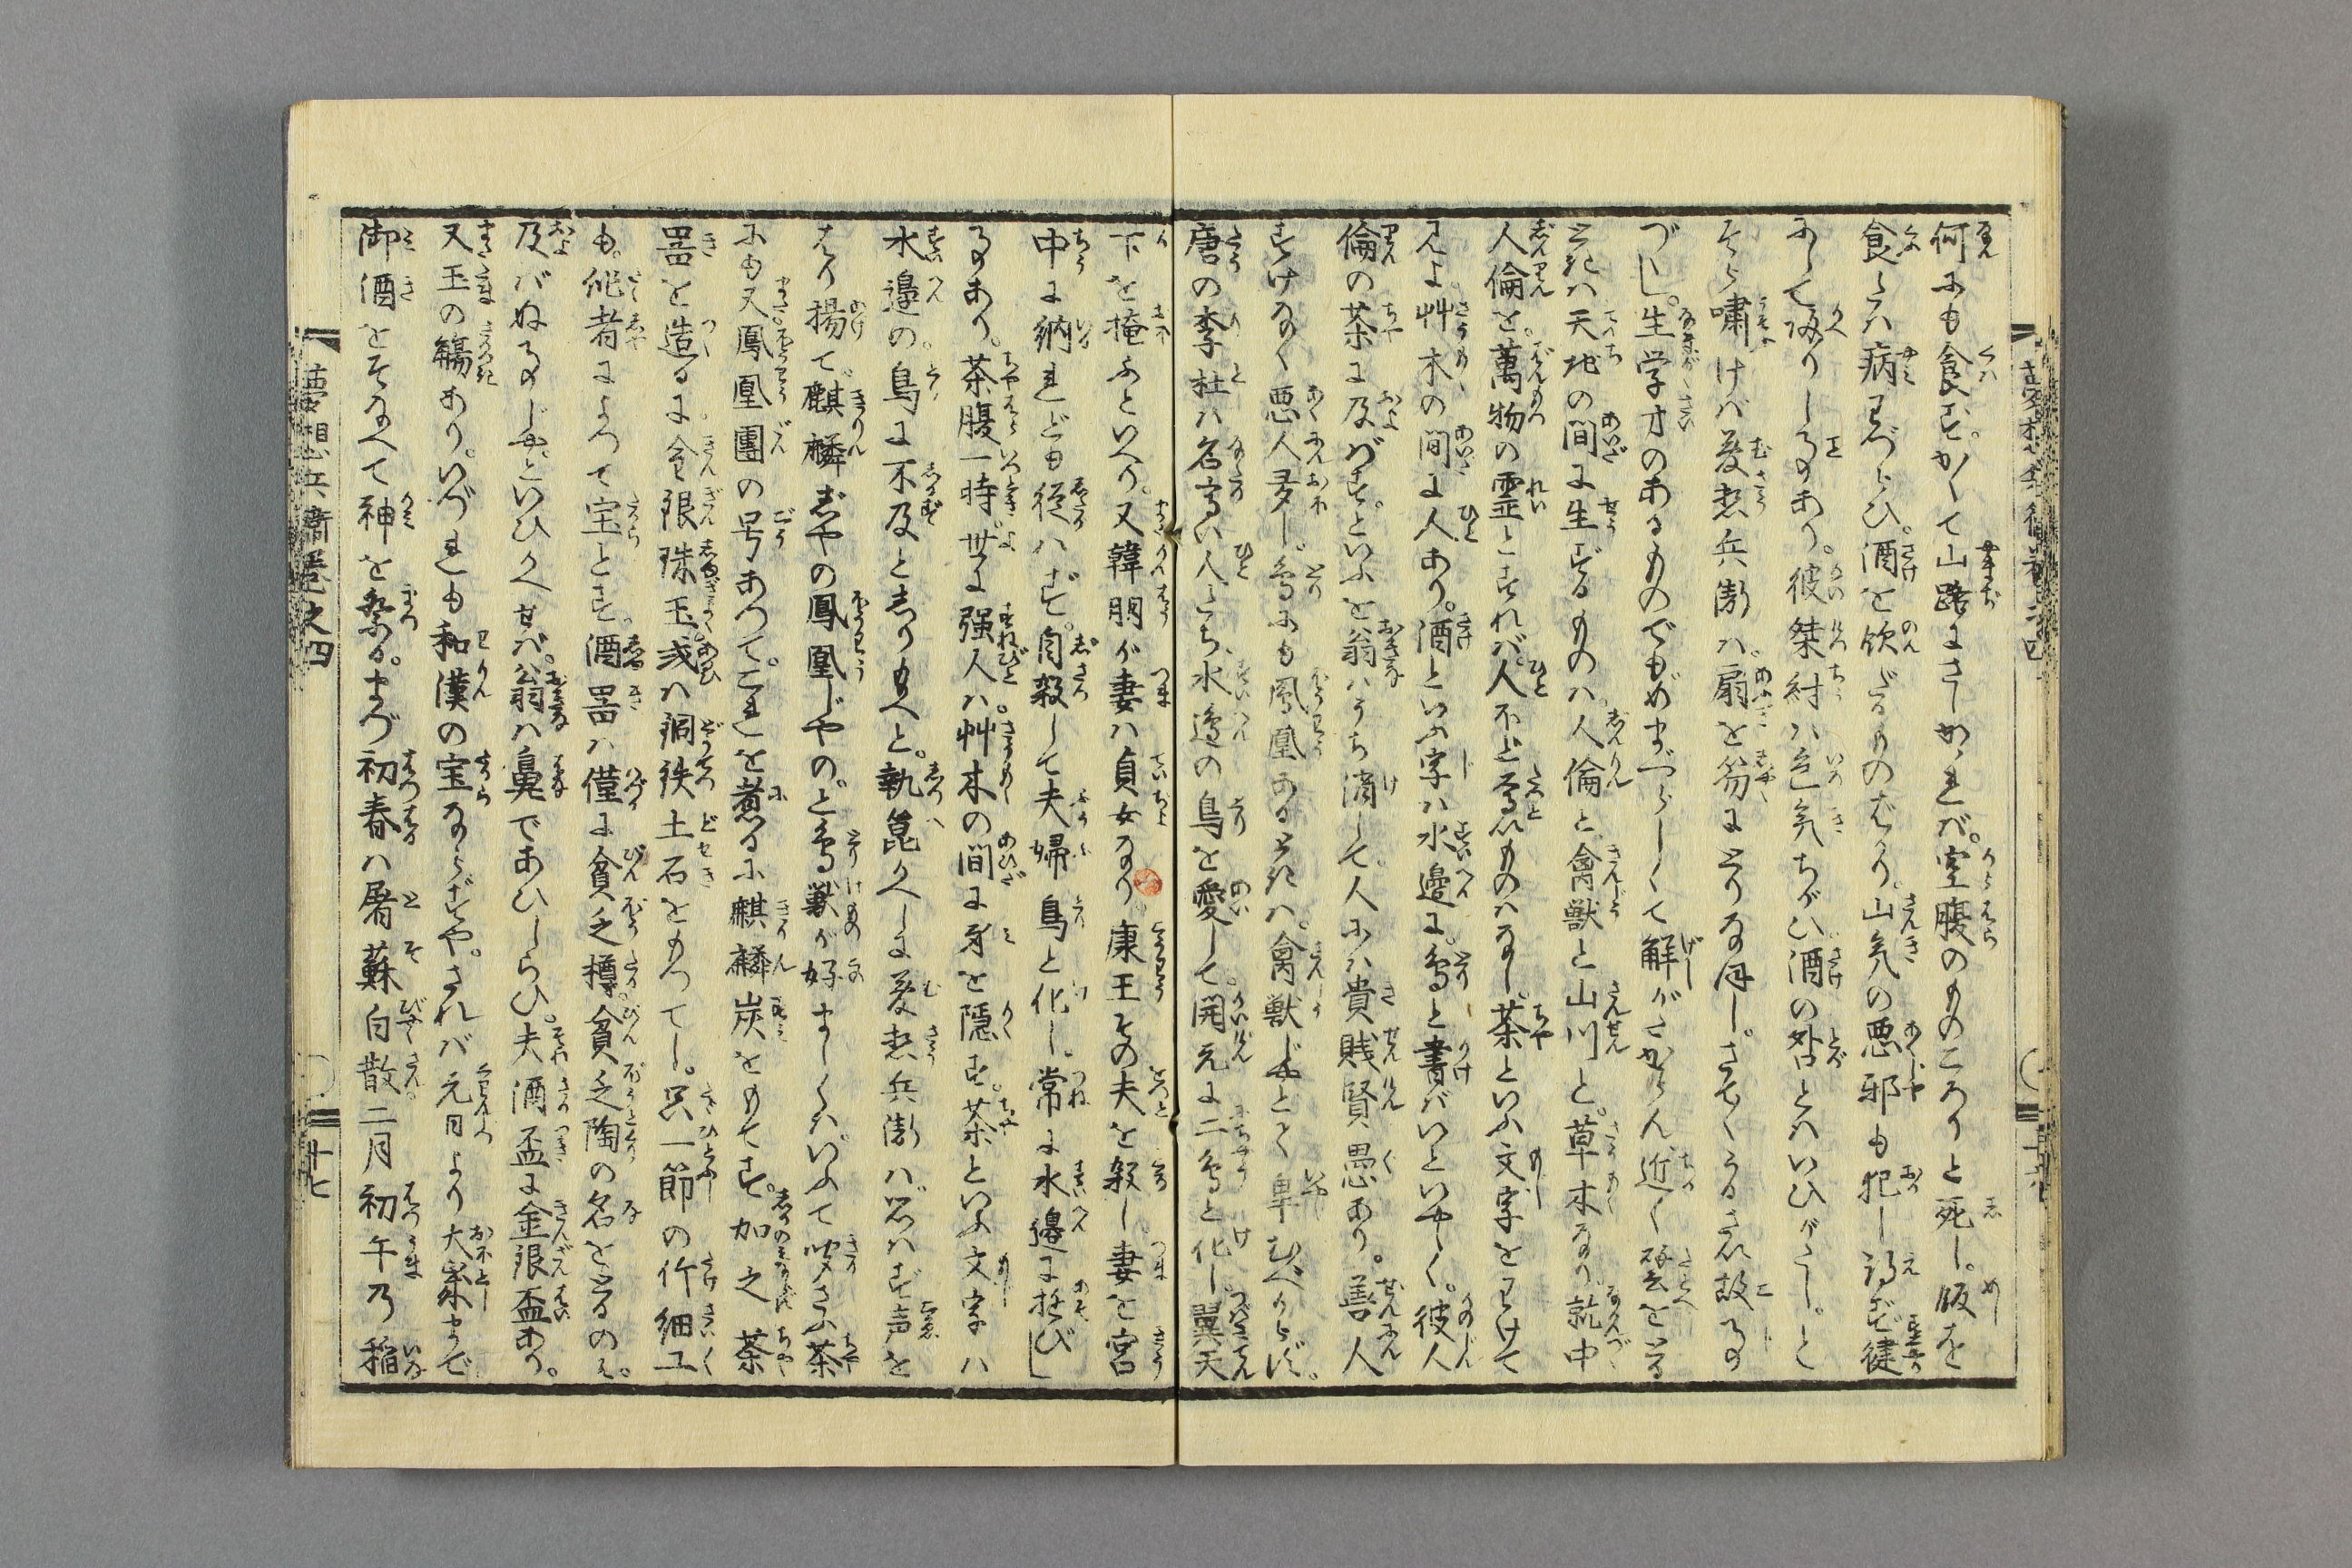 何にも食ず。かくて山路にさしかゝれば。空腹のものころりと死し。飯を
食しは病わづらひ。酒を飲だるものばかり。山気の悪邪も犯し得ず徤
にて帰りし事あり。彼桀紂は色気ちがひ酒の咎とはいひがたし。と
そら嘯けば夢想兵衛は。扇を笏にとりなほし。さもうるさい故事
づくし。生学才のあるものでもめづらしくて解しがたからん近く譬をとる
ときは天地の間に生ずるものは人倫と禽獣と山川と。草木なり就中
人倫を萬物の霊とすれば。人より上尊いものはなし。茶といふ文字をわけて
見よ。艸木の間に人あり。酒といふ字は水邉に。鳥と書ばいといやし。彼人
倫の茶に及ばず。といふを翁はうち消して。人には貴賎賢愚あり。善人
すけなく悪人多し鳥にも鳳凰あるときは。禽獣じやとて卑むべからず。
唐の李杜は名高い人たち、水邉の鳥を愛して。開元に二鳥と化し。翼天
下を掩ふといへり。又韓朋が妻は貞女なり康王その夫を殺し。妻を宮
中に納れども従はず。自殺して夫婦鳥と化し。常に水邉に遊び
事あり。茶腹一時世に強人は。艸木の間に身を隠す。茶といふ文字は
水邉の鳥に不及としりもへと。執篦かへしに夢想兵衛は思はず声を
はり揚て。麒麟じやの鳳凰じやの。と鳥獣が好ましくはいふて聞さふ茶
にも又鳳凰團の号あつて。これを煮るに麒麟炭をもてす。加之茶
器を造るに金銀珠玉或は銅鉄土石をもつてし。只一節の竹細工
も。作者によつて宝とす。酒器は僅に貧乏樽。貧乏陶の名をとるのみ。
及ばぬ事じや。といひかへせば。翁は鼻であひしらひ。夫酒盃に金銀盃あり。
又玉の觴あり。いづれも和漢の宝ならずや。されば元日より大晦まで
御酒をそなへて神を祭る。まづ初春は屠蘇白散二月初午乃稲
夢想兵衛巻之四
十七